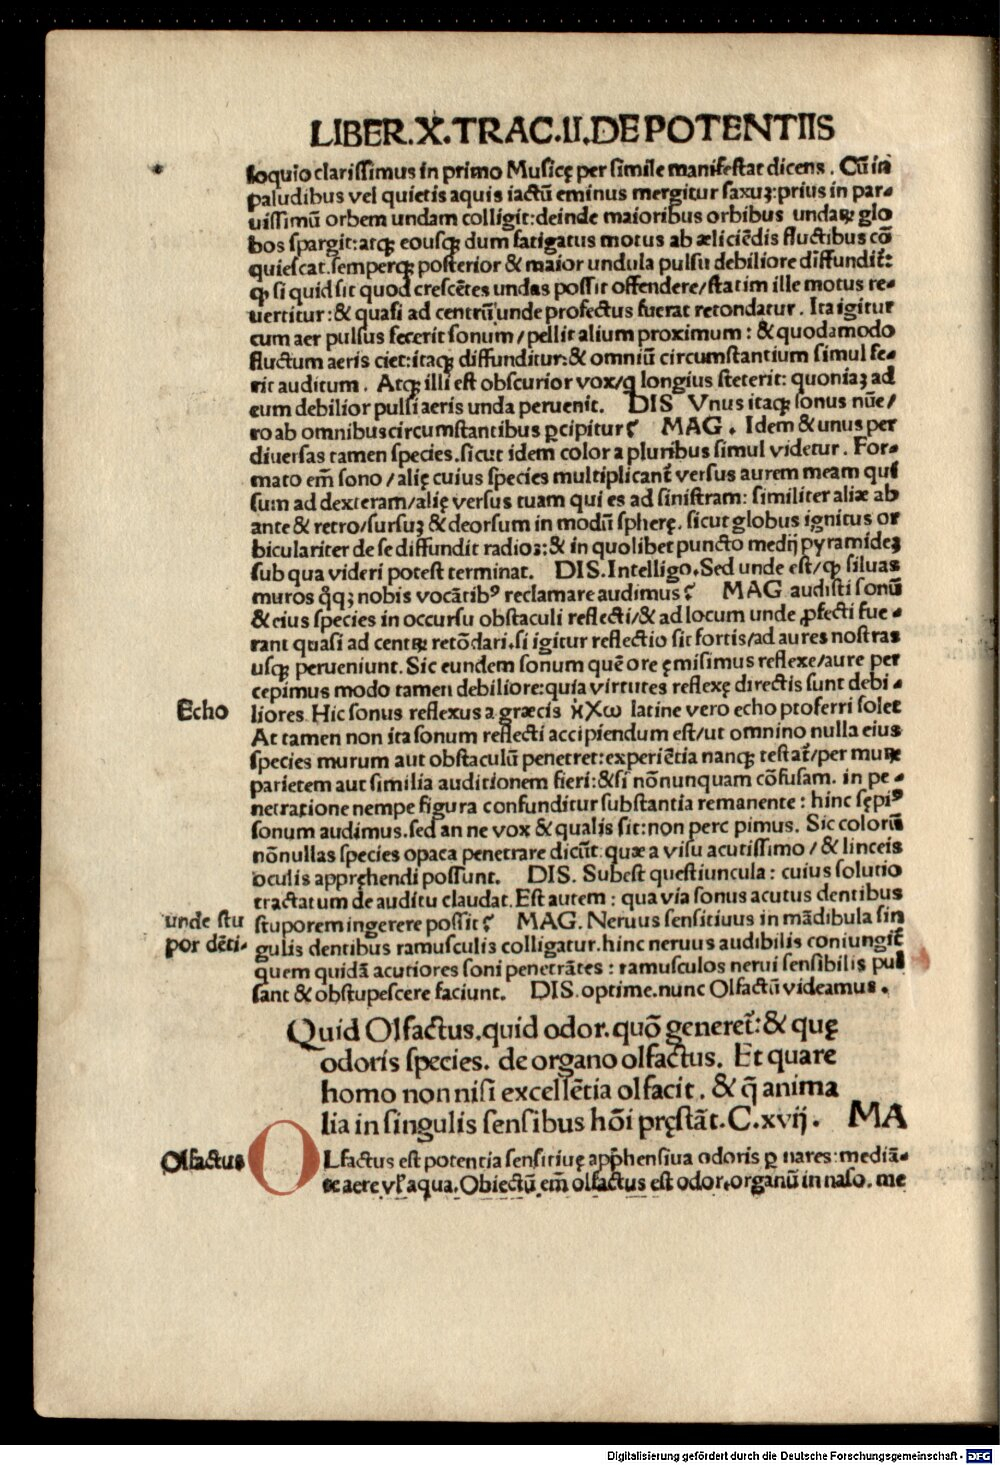 LIBER.X.TRAC.II.DE POTENTIIS
loquio clarissimus in primo Musicę per simile manifestat dicens. Cū in
paludibus vel quietis aquis iactū eminus mergitur saxuꝫ:prius in par-
uissimū orbem undam colligit:deinde maioribus orbibus undaꝝ glo
bos spargit:atqꝫ eousqꝫ dum fatigatus motus ab æliciēdis fluctibus cō
quiescat.semperqꝫ posterior & maior undula pulsu debiliore diffundit᷑:
ꝙ si quid sit quod crescētes undas possit offendere/statim ille motus re-
uertitur:& quasi ad centrū unde profectus fuerat retondatur. Ita igitur
cum aer pulsus fecerit sonum/pellit alium proximum:& quodamodo
fluctum aeris ciet:itaqꝫ diffunditur:& omniū circumstantium simul fe-
rit auditum. Atqꝫ illi est obscurior vox/q longius steterit: quoniaꝫ ad
eum debilior pulsi aeris unda peruenit. DIS Vnus itaqꝫ sonus nūe/
ro ab omnibus circumstantibus ꝑcipitur? MAG. Idem & unus per
diuersas tamen species.sicut idem color a pluribus simul videtur. For-
mato em̄ sono/alię cuius species multiplicant᷑ versus aurem meam qui
sum ad dexteram/alię versus tuam qui es ad sinistram: similiter aliæ ab
ante & retro/sursuꝫ & deorsum in modū spherę. sicut globus ignitus or
biculariter de se diffundit radioꝫ:& in quolibet puncto medij pyramideꝫ
sub qua videri potest terminat. DIS.Intelligo.Sed unde est/ꝙ siluas
muros q̄qꝫ nobis vocātibꝰ reclamare audimus? MAG audisti sonū
& eius species in occursu obstaculi reflecti/& ad locum unde ꝓfecti fue-
rant quasi ad centꝝ retōdari.si igitur reflectio sit fortis/ad aures nostras
usqꝫ perueniunt. Sic eundem sonum quē ore ęmisimus reflexe/aure per
cepimus modo tamen debiliore:quia virtutes reflexę directis sunt debi-
Echo
liores. Hic sonus reflexus a græcis ἠχω latine vero echo proferri solet
At tamen non ita sonum reflecti accipiendum est/ut omnino nulla eius
species murum aut obstaculū penetret:experiētia nanqꝫ testat᷑/per muꝝ
parietem aut similia auditionem fieri:&si nōnunquam cōfusam. in pe-
netratione nempe figura confunditur substantia remanente: hinc sępiꝰ
sonum audimus.sed an ne vox & qualis sit:non perc pimus. Sic colorū
nōnullas species opaca penetrare dicūt.quæ a visu acutissimo/& linceis
oculis appręhendi possunt. DIS. Subest questiuncula: cuius solutio
tractatum de auditu claudat.Est autem: qua via sonus acutus dentibus
unde stu
por dēti-
stuporem ingerere possit? MAG. Neruus sensitiuus in mādibula sin
gulis dentibus ramusculis colligatur.hinc neruus audibilis coniungit᷑
quem quidā acutiores soni penetrātes: ramusculos nerui sensibilis pul
sant & obstupescere faciunt. DIS.optime.nunc Olfactū videamus.
Quid Olfactus.quid odor.quō generet᷑:& quę
odoris species. de organo olfactus. Et quare
homo non nisi excellētia olfacit. & q̄ anima
lia in singulis sensibus hōi pręstāt.C.xvij. MA
Olfactus
OLfactus est potentia sensitiuę app̄hensiua odoris ꝑ nares:mediā-
te aere vl̓ aqua.Obiectū em̄ olfactus est odor.organū in naso. me
Digitalisierung gefördert durch die Deutsche Forschungsgemeinschaft - DFG